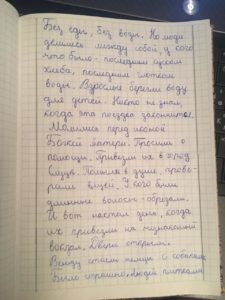 Без еды, без воды. Но люди
делились между собой у кого
что было - последним куском
хлеба, последним глотком
воды. Взрослые берегли воду
для детей. Никто не знал,
когда эта поездка закончится.
Молились перед иконой
Божьей матери. Просили о
помощи. Привезли их в город
Помыли в душе, прове-
рили вшей. У кого были
длинные волосы - обрезали.
И вот настал день, когда
их привезли на
вокзал. Двери открыли.
Внизу стояли немцы с собаками.
Было страшно. Людей